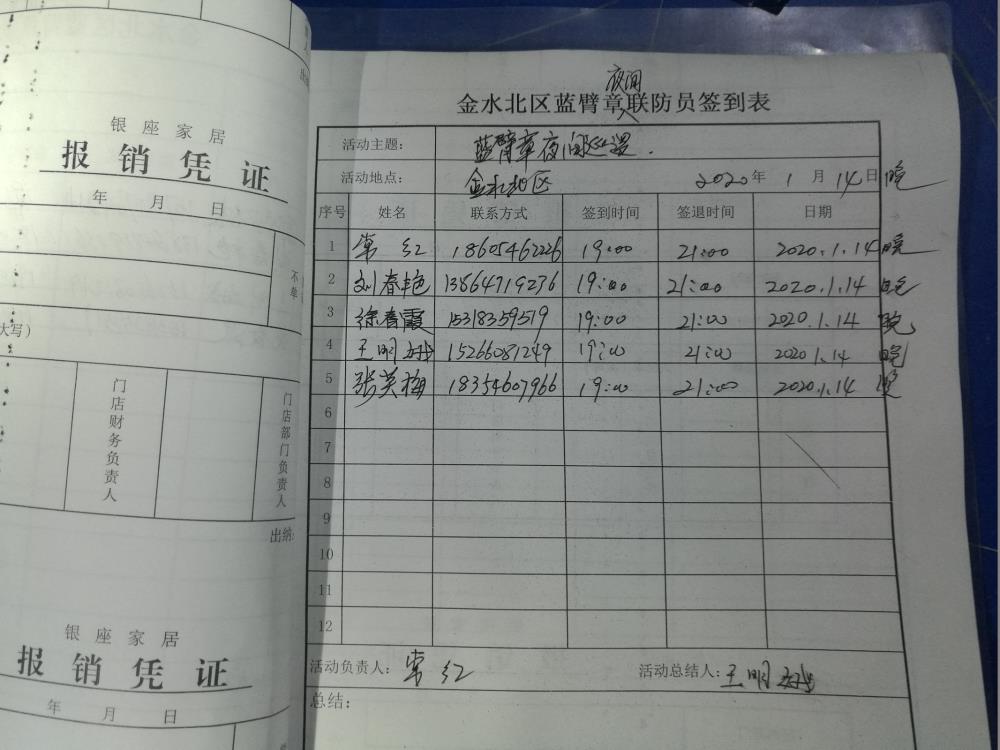 银座家居
报销凭证
年 月 日
不
单
大写）
门店财务负责人
门店部门负责人
出纳:
银座家居
报销凭证
年 月 日
夜间
金水北区蓝臂章联防员签到表
活动主题： 蓝臂章夜间巡逻.
活动地点： 金水北区 2020年 1 月 14日 晚
序号 姓名 联系方式 签到时间 签退时间 日期
1 常红 18605462226 19:00 21:00 2020.1.14 晚
2 刘春艳 13864719236 19:00 21:00 2020.1.14 晚
3 徐春霞 15318359519 19:00 21:00 2020.1.14 晚
4 王明 15266081249 19:00 21:00 2020.1.14 晚
5 张英梅 18354607966 19:00 21:00 2020.1.14
6
7
8
9
10
11
12
活动负责人： 常红 活动总结人： 王明
总结：